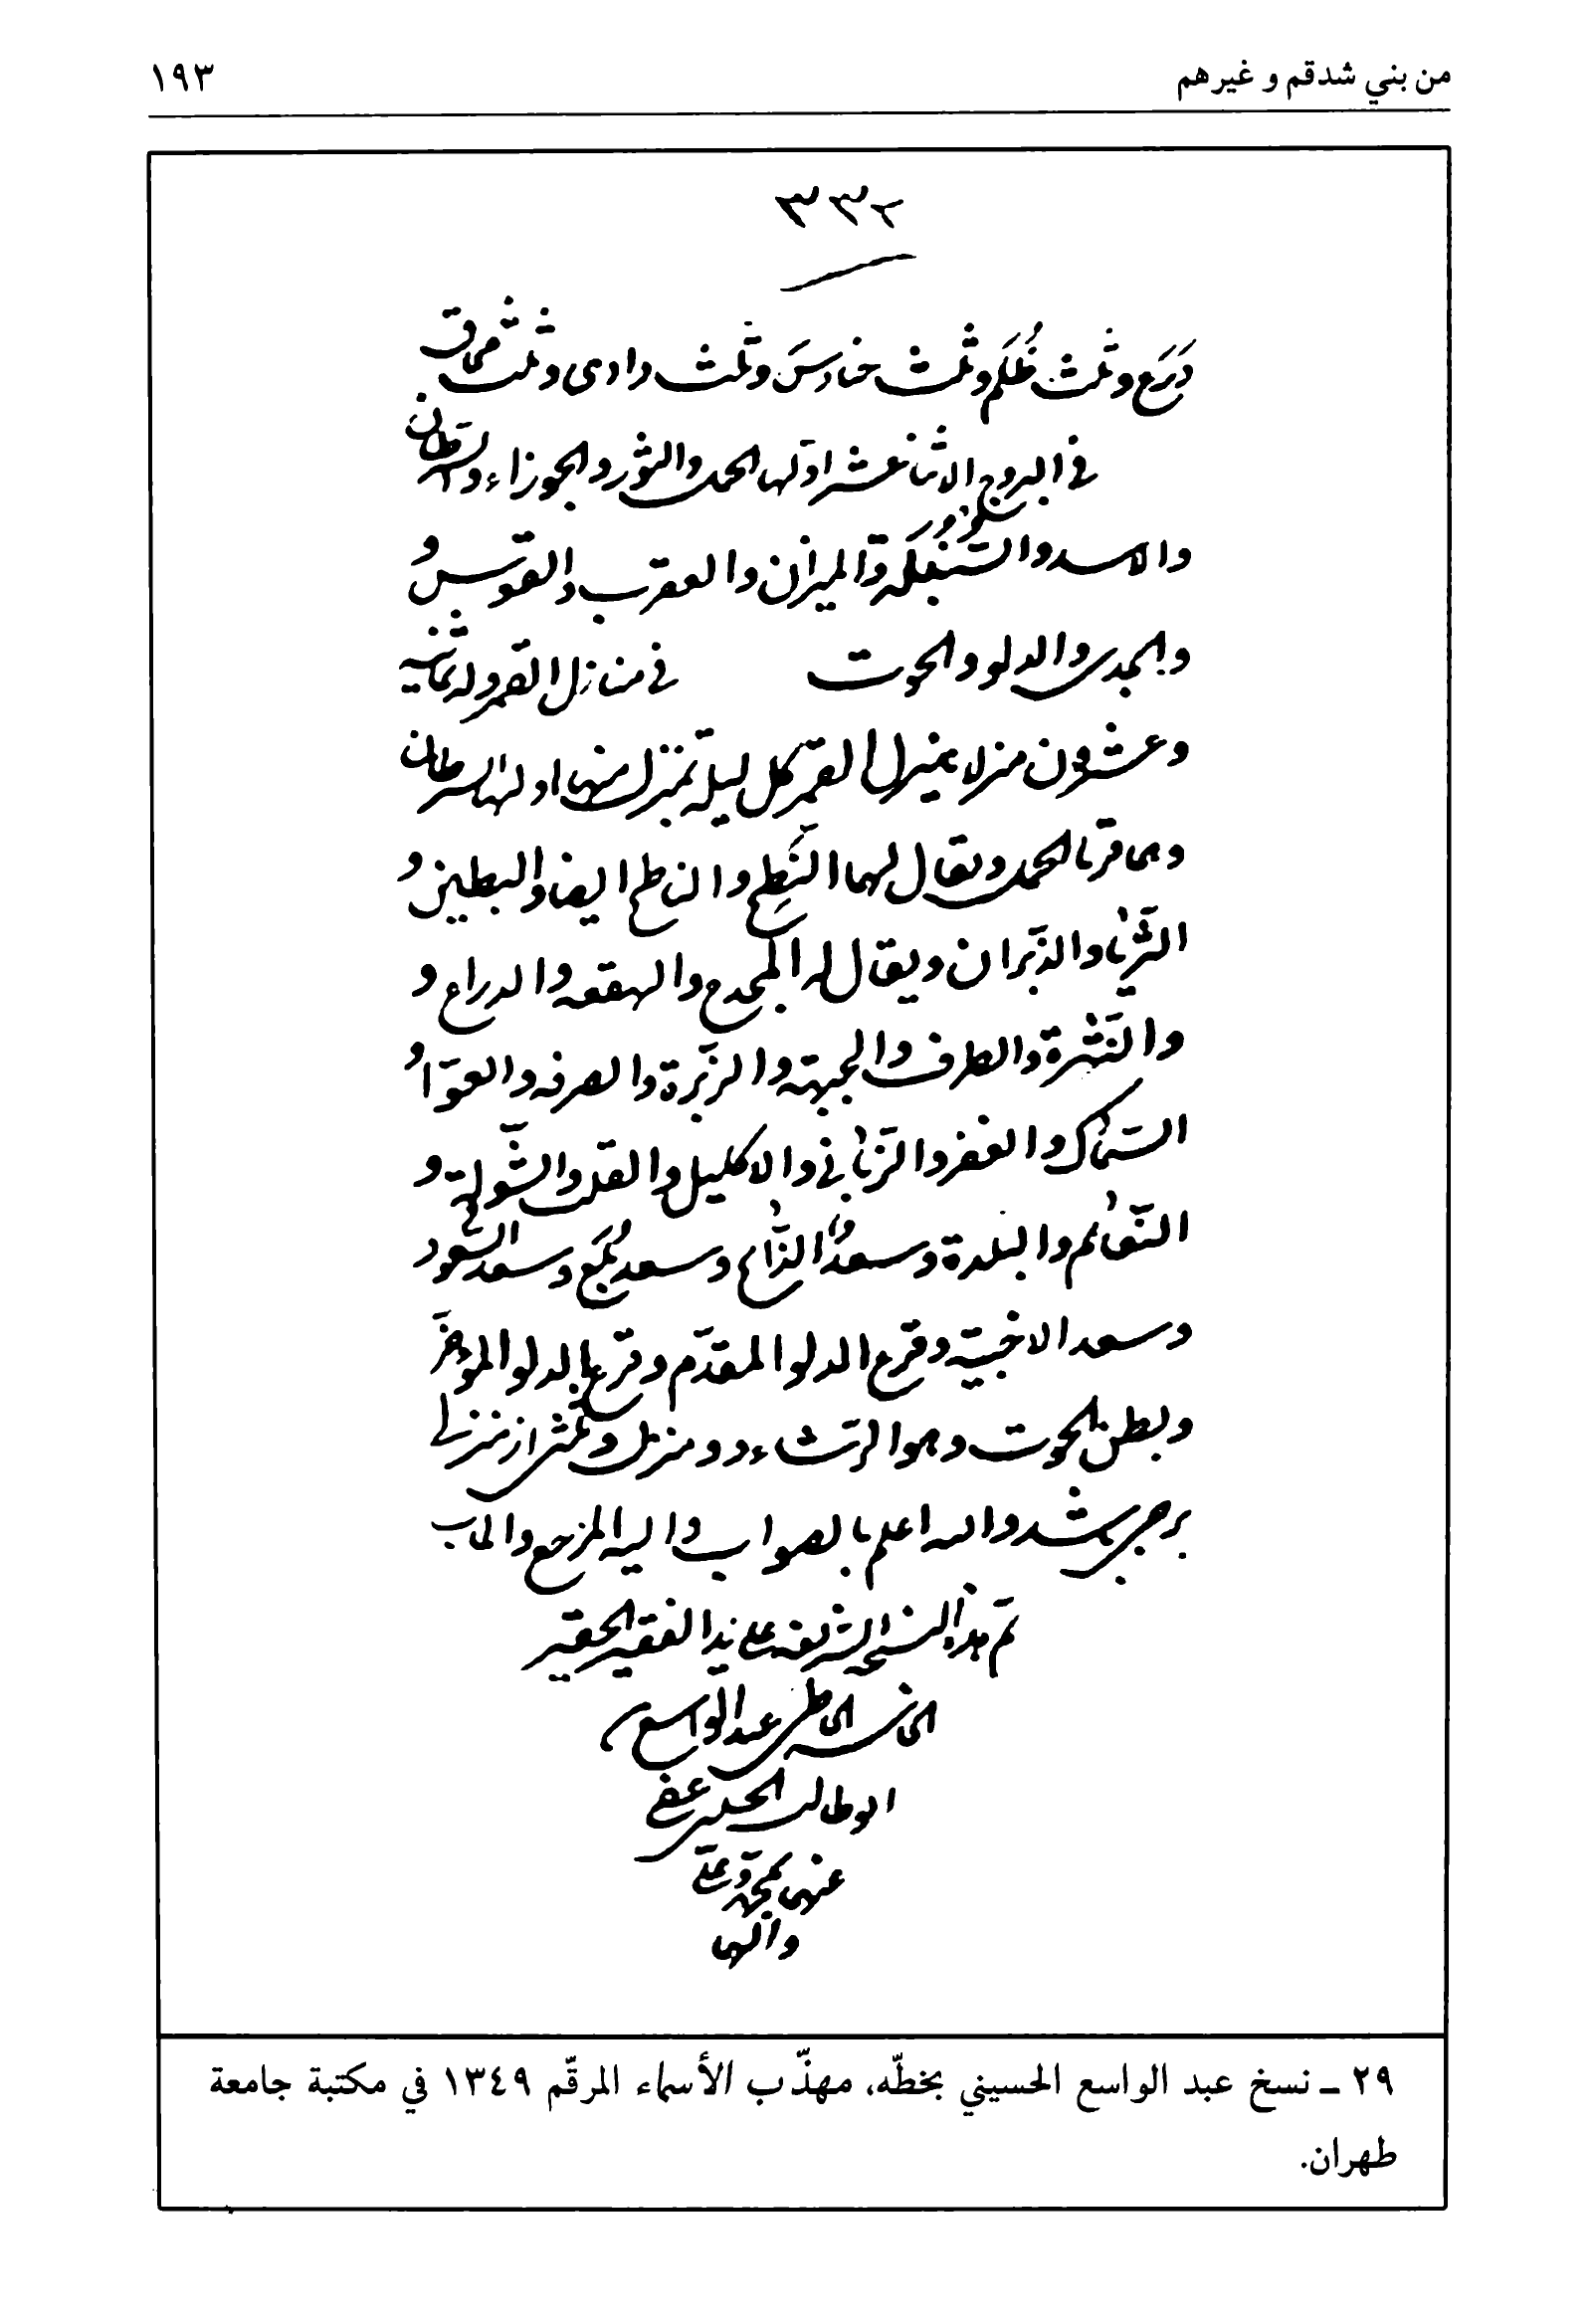 من بني شدقم و غيرهم ١٩٣
٣٣٢
دُرَع وثلث ظُلَم وثلث حنادسَ وثلث دادى وثلث محاق
فى البروج الاثنا عشر اولها الحمل والثور والجوزاء والسرطان
والاسد والسنبلة والميزان والعقرب والقوسُ و
والجدى والدلو والحوت فى منازل القمر وله ثمانية
وعشرون منزلا ينزل القمر كل ليلة بمنزل منها اولها السرطان
وهما قرنا الحمل ويقال لهما النَطِح والناطح ايضا والبطين و
الثريا والدَّبَران ويقال له المجدح والهقعه والدراع و
والنَثْرة والطرف والجبهة والزُبرة والصرفه والعوّا و
السماك والغفر والزُبانى والاكليل والقلب والشَّولة و
النّعائم والبلدة وسعدُ الذابح وسعد بُلَع وسعد السعود
وسعد الاخبية وفرغ الدلو المقدّم وفرغ الدلو المؤخر
وبطن الحوت وهو الرشاء دو منزل وثلثى از منزلى
برجى باشد والله اعلم بالصواب واليه المرجع والماب
تم هذه النسخة الشريفه على يد الفقير الحقير
عبد الواسع
ابو طالب الحسينى عفى
عنهما بمحمد وعلى
وآلهما
٢٩ ـ نسخ عبد الواسع الحسيني بخطّه، مهذّب الأسماء المرقّم ١٣٤٩ في مكتبة جامعة
طهران.